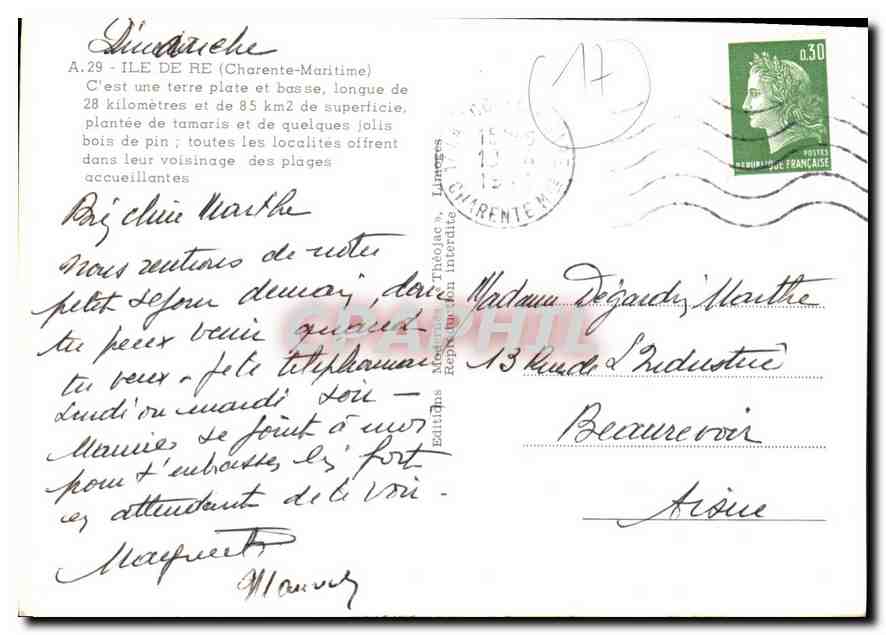 Dimanche
A.29 - ILE DE RE (Charente-Maritime)
C'est une terre plate et basse, longue de
28 kilomètres et de 85 km2 de superficie,
plantée de tamaris et de quelques jolis
bois de pin ; toutes les localités offrent
dans leur voisinage des plages
accueillantes
Bien chère Marthe
Nous rentrons de notre
petit séjour demain, donc
tu peux venir quand
tu veux. Je te téléphonerai
Lundi ou mardi soir —
Maurice se joint à moi
pour t'embrasser bien fort
en attendant de te voir.
Marguerite
Maurice
Editions Modernes « Théojac », Limoges
Reproduction interdite
17
CHARENTE Mme
0,30
POSTES
REPUBLIQUE FRANÇAISE
Madame Dégardin Marthe
13 Rue de L'Industrie
Beaurevoir
Aisne
CPAPHIL